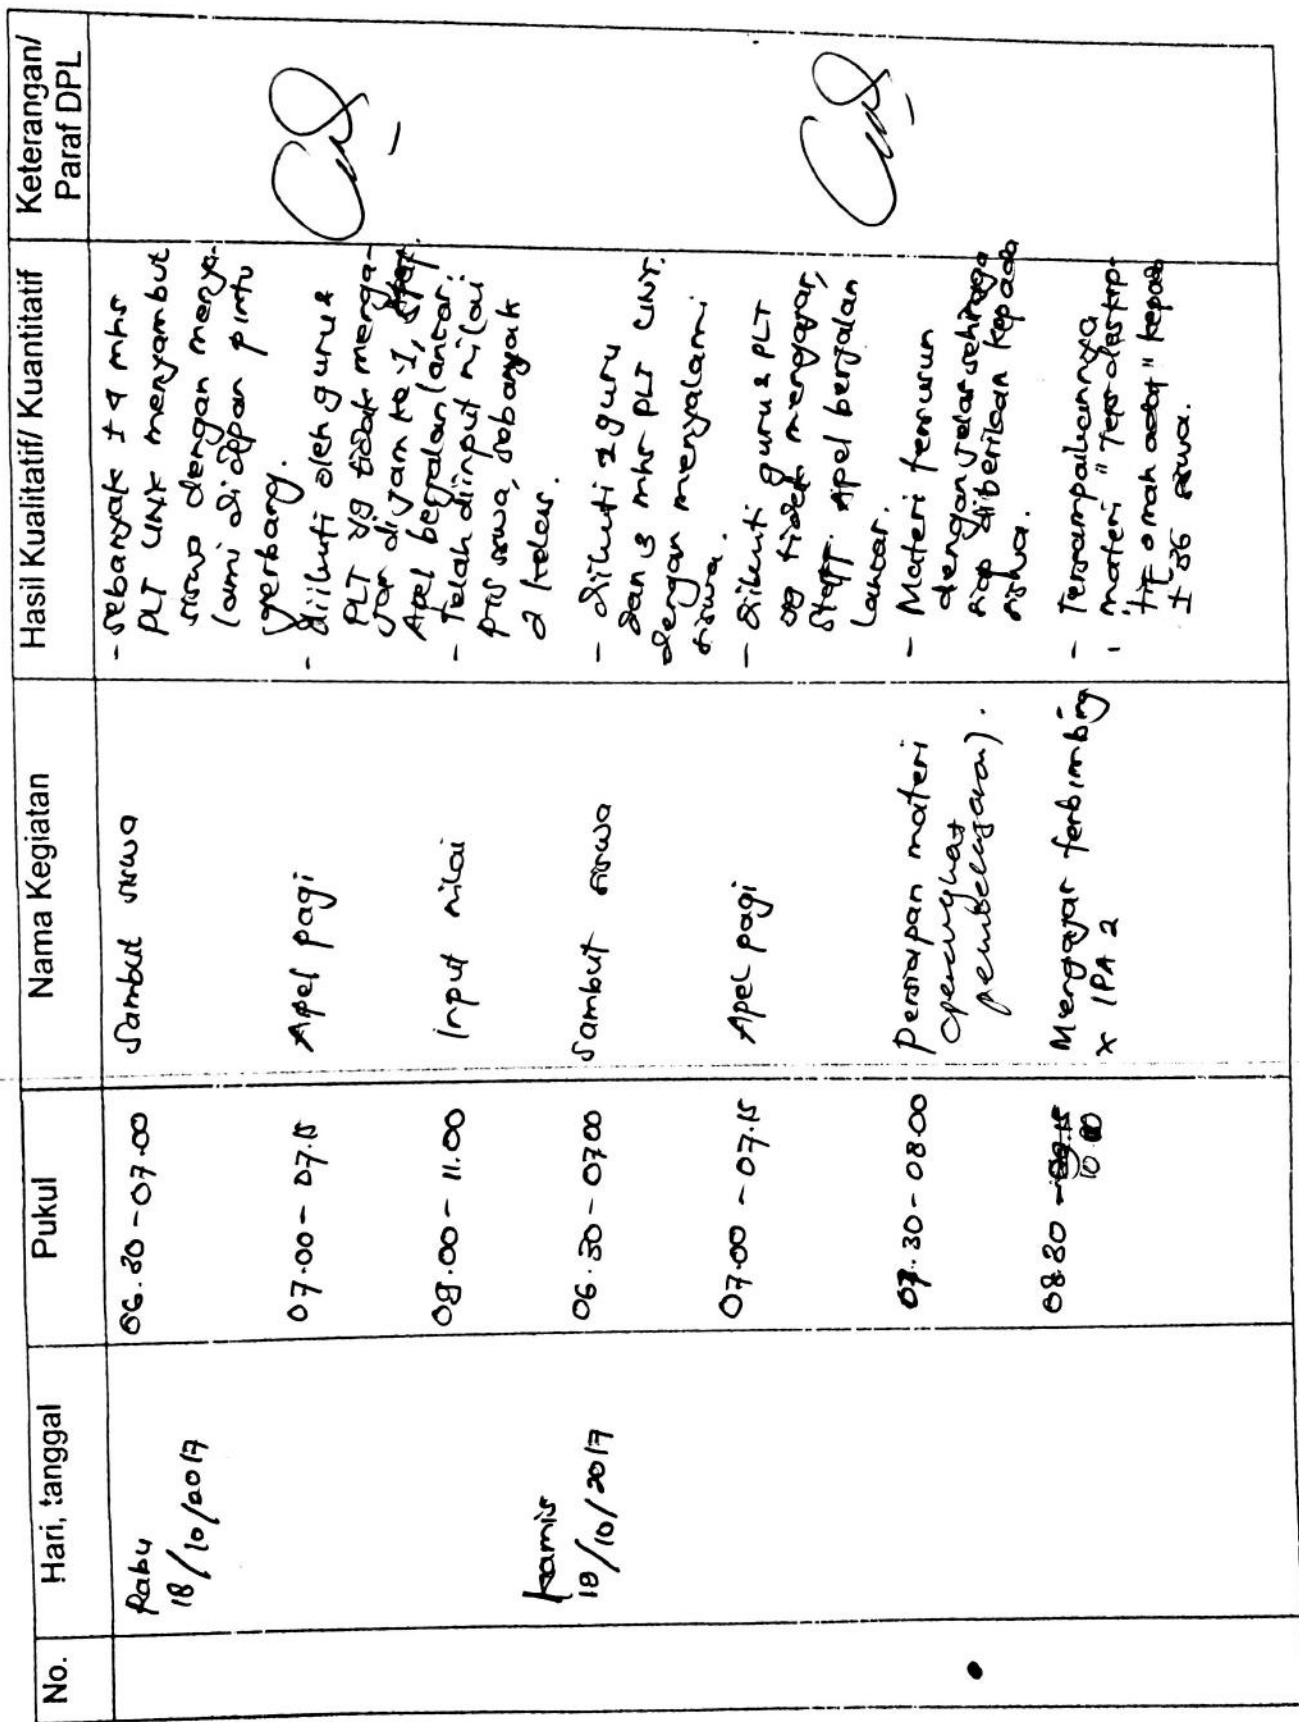 No.
Hari, tanggal
Pukul
Nama Kegiatan
Hasil Kualitatif/ Kuantitatif
Keterangan/
Paraf DPL
Rabu
18/10/2017
06.30 - 07.00
Sambut siswa
- sebanyak ± 9 mhs
PLT UNY menyambut
siswa dengan menya-
lami di depan pintu
gerbang.
07.00 - 07.15
Apel pagi
- diikuti oleh guru &
PLT yg tidak menga-
jar di jam ke-1, staf.
Apel berjalan lancar.
08.00 - 11.00
Input nilai
- Telah diinput nilai
PTS siswa, sebanyak
2 kelas.
Kamis
18/10/2017
06.30 - 07.00
Sambut siswa
- Diikuti 2 guru
dan 3 mhs PLT UNY.
dengan menyalami
siswa.
07.00 - 07.15
Apel pagi
- Diikuti guru & PLT
yg tidak mengajar,
staff. Apel berjalan
lancar.
07.30 - 08.00
Persiapan materi
(perangkat
pembelajaran).
- Materi tersusun
dengan jelas sehingga
siap diberikan kepada
siswa.
08.30 -
10.00
Mengajar terbimbing
X IPA 2
- Tersampaikannya
materi "Teks deskrip-
tif omah adat" kepada
± 36 siswa.